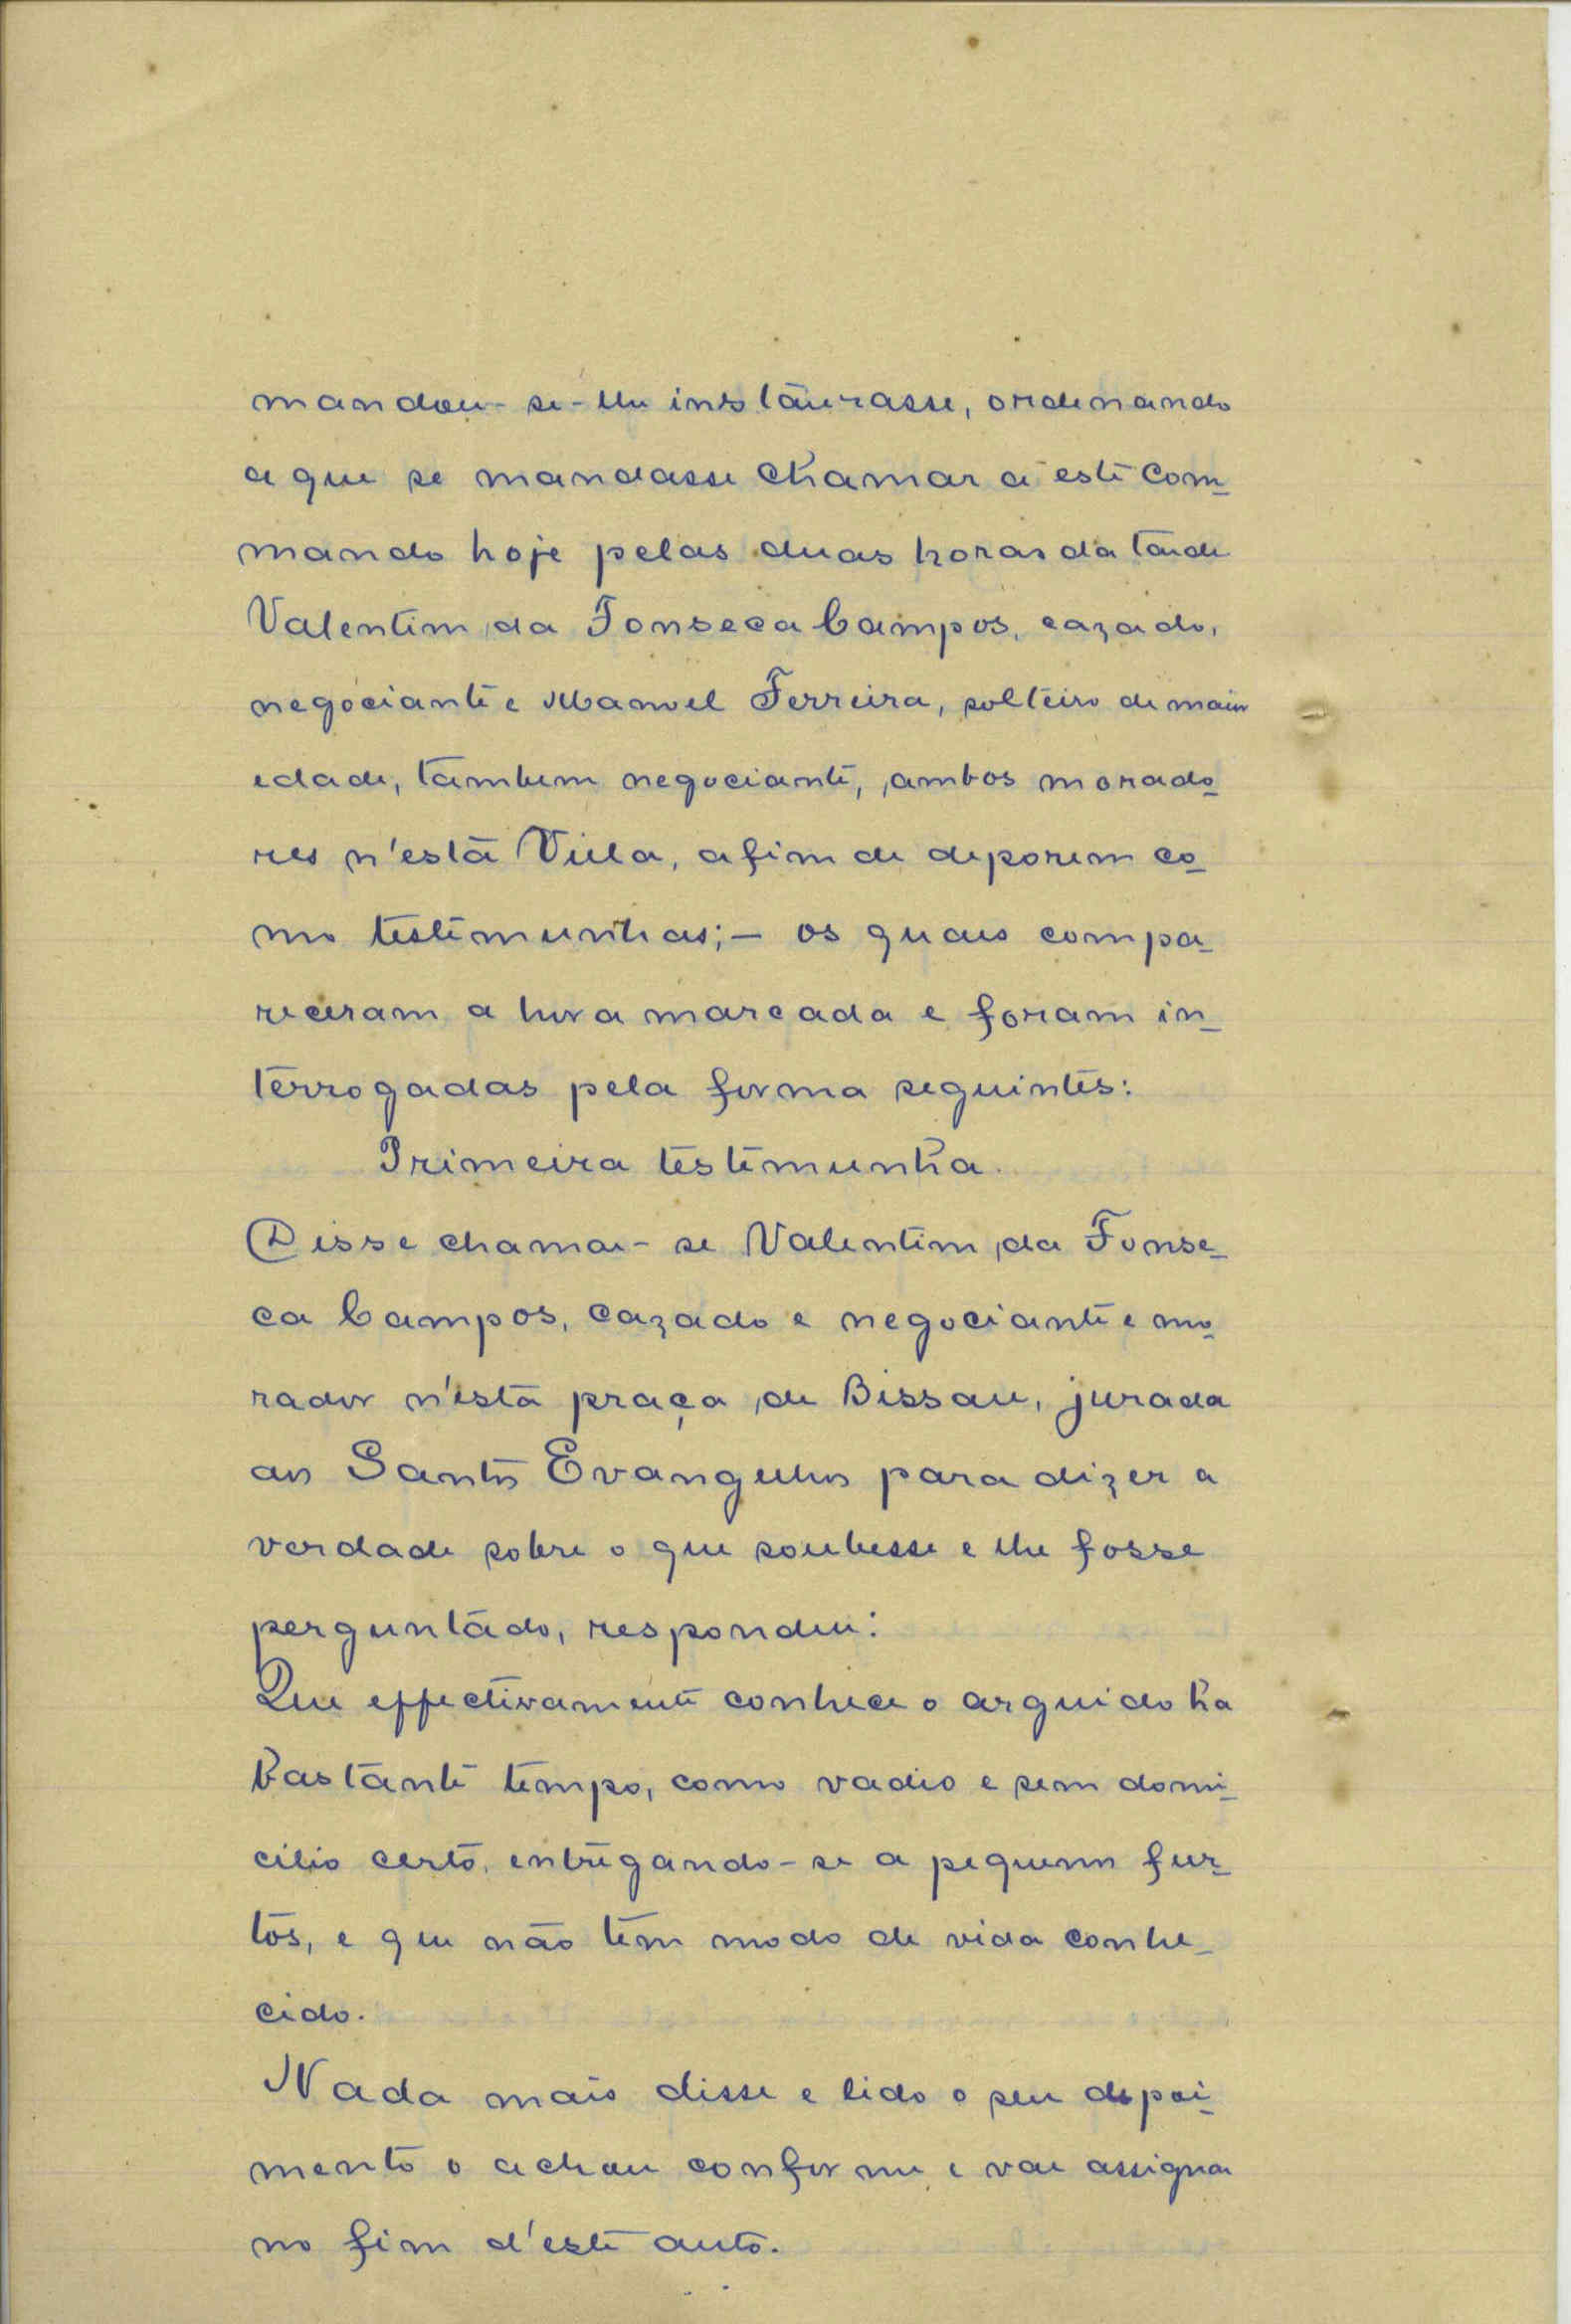 mandou-se-lhe instaurasse, ordenando
a que se mandasse chamar a este com-
mando hoje pelas duas horas da tarde
Valentim da Fonseca Campos, cazado,
negociante e Manoel Ferreira, solteiro de maior
edade, tambem negociante, ambos morado-
res n'esta Villa, afim de deporem co-
mo testemunhas; - os quaes compa-
receram a hora marcada e foram in-
terrogadas pela forma seguintes:
Primeira testemunha.
Disse chamar-se Valentim da Fonse-
ca Campos, cazado e negociante e mo-
rador n'esta praça de Bissau, jurada
aos Santos Evangelhos para dizer a
verdade sobre o que soubesse e lhe fosse
perguntado, respondeu:
Que effectivamente conhece o arguido ha
bastante tempo, como vadio e sem domi-
cilio certo, entregando-se a pequenos fur-
tos, e que não tem modo de vida conhe-
cido.
Nada mais disse e lido o seu depoi-
mento o achou conforme e vae assignar
no fim d'este auto.